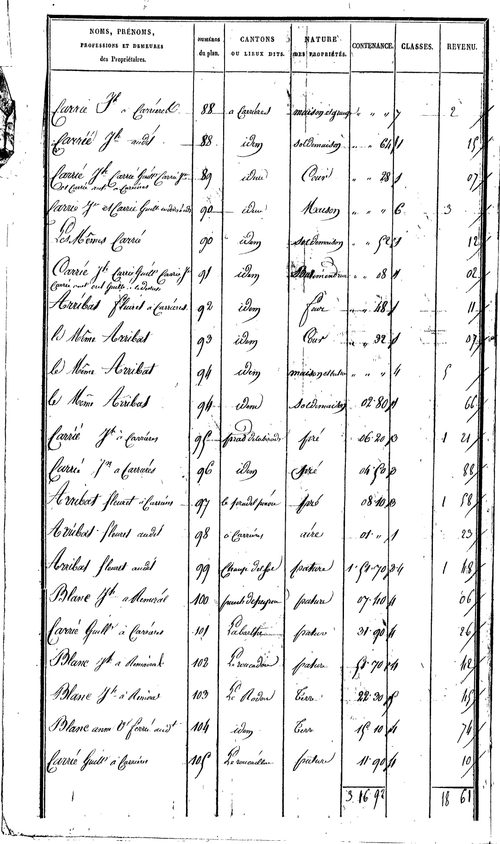 NOMS, PRÉNOMS, PROFESSIONS ET DEMEURES des Propriétaires. NUMÉROS du plan. CANTONS OU LIEUX DITS. NATURE DES PROPRIÉTÉS. CONTENANCE. CLASSES. REVENU.
Carrié Jh à Carrieres 88 a Carrières maison et grange " " " 7 2
Carrié Jh audt 88 idem sol de maison " " 64 1 15
Carrié Jh Carrié Guill Carrié Jn 89 idem Cour " " 28 1 07
Carrié Jn et Carrié Guill 90 idem Maison " " " 6 3
Les Mêmes Carrié 90 idem sol de maison " " 52 1 12
Carrié Jh Carrié Guill Carrié Jn 91 idem " " 08 1 02
Arribat fleuret à Carrieres 92 idem four " " 48 1 11
le Même Arribat 93 idem Cour " " 32 1 07
le Même Arribat 94 idem " " " 4 5
le Même Arribat 94 idem sol de maison 02 80 1 66
Carrié Jh à Carrieres 95 pré 06 20 3 1 21
Carrié Jn a Carrieres 96 idem Pré 04 52 3 88
Arribat fleuret à Carrieres 97 pré 08 10 3 1 58
Arribat fleuret audt 98 à Carrieres aire 01 " 1 23
Arribat fleuret audt 99 pature 1 51 70 34 1 48
Blanc Jh 100 pature 07 40 4 06
Carrié Guill à Carrieres 101 pature 31 90 4 26
Blanc Jh à 102 pature 51 70 4 42
Blanc Jh à 103 Le Rodou Terre 22 30 5 45
Blanc 104 idem Terre 15 10 4 74
Carrié Guill à Carrieres 105 pature 11 90 4 10
3 16 92 18 61